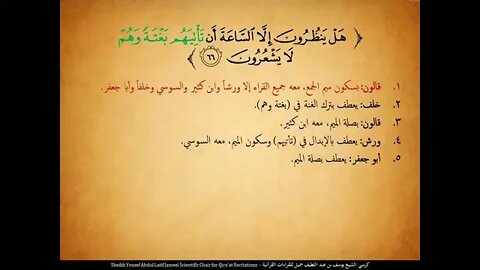 ﴿ هَلْ يَنظُرُونَ إِلَّا ٱلسَّاعَةَ أَن تَأْتِيَهُم بَغْتَةً وَهُمْ
لَا يَشْعُرُونَ ٦٦ ﴾
١. قالون: بسكون ميم الجمع، معه جميع القراء إلا ورشاً وابن كثير والسوسي وخلفاً وأبا جعفر.
٢. خلف: يعطف بترك الغنة في (بغتة وهم).
٣. قالون: بصلة الميم، معه ابن كثير.
٤. ورش: يعطف بالإبدال في (تأتيهم) وسكون الميم، معه السوسي.
٥. أبو جعفر: يعطف بصلة الميم.
كرسي الشيخ يوسف بن عبد اللطيف جميل للقراءات القرآنية - Sheikh Yousef Abdul Latif Jameel Scientific Chair for Qira'at Recitations